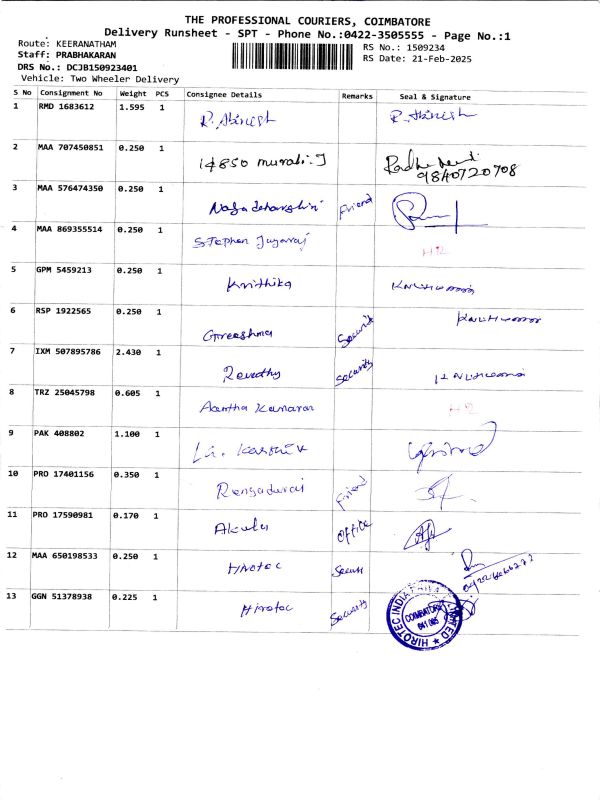 THE PROFESSIONAL COURIERS, COIMBATORE
Delivery Runsheet - SPT - Phone No.:0422-3505555 - Page No.:1
Route: KEERANATHAM
RS No.: 1509234
Staff: PRABHAKARAN
RS Date: 21-Feb-2025
DRS No.: DCJB150923401
Vehicle: Two Wheeler Delivery
S No Consignment No Weight PCS Consignee Details Remarks Seal & Signature
1 RMD 1683612 1.595 1 R. Abinesh R. Abinesh
2 MAA 707450851 0.250 1 14850 murali.J
9840720708
3 MAA 576474350 0.250 1 Nagadharshini Friend
4 MAA 869355514 0.250 1 Stephen Jayaraj H2
5 GPM 5459213 0.250 1 Krithika
6 RSP 1922565 0.250 1 Greeshma Security
7 IXM 507895786 2.430 1 Revathy Security
8 TRZ 25045798 0.605 1 H2
9 PAK 408802 1.100 1
10 PRO 17401156 0.350 1 Rengaduraj Friend
11 PRO 17590981 0.170 1 Office
12 MAA 650198533 0.250 1 Hirotec Securi
13 GGN 51378938 0.225 1 Hirotec Security
HIROTEC INDIA
COIMBATORE
641 005